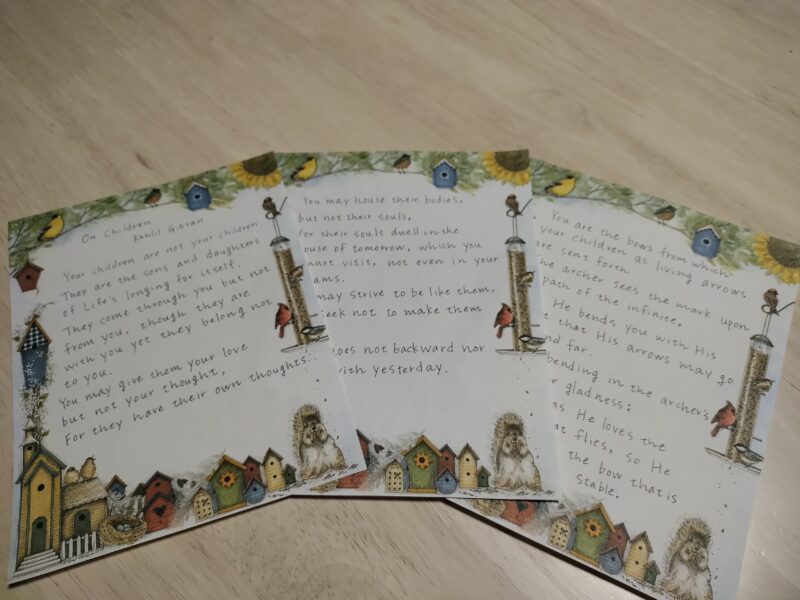 On Children
Kahlil Gibran
Your children are not your children
They are the sons and daughters
of Life's longing for itself.
They come through you but not
from you, though they are
with you yet they belong not
to you.
You may give them your love
but not your thought,
For they have their own thoughts.
You may house their bodies,
but not their souls,
For their souls dwell in the
ouse of tomorrow, which you
nnot visit, not even in your
ams.
may strive to be like them,
seek not to make them
oes not backward nor
with yesterday.
You are the bows from which
your children as living arrows
are sent forth.
he archer sees the mark upon
path of the infinite,
He bends you with His
t that His arrows may go
nd far.
bending in the archer's
r gladness:
as He loves the
at flies, so He
the bow that is
stable.